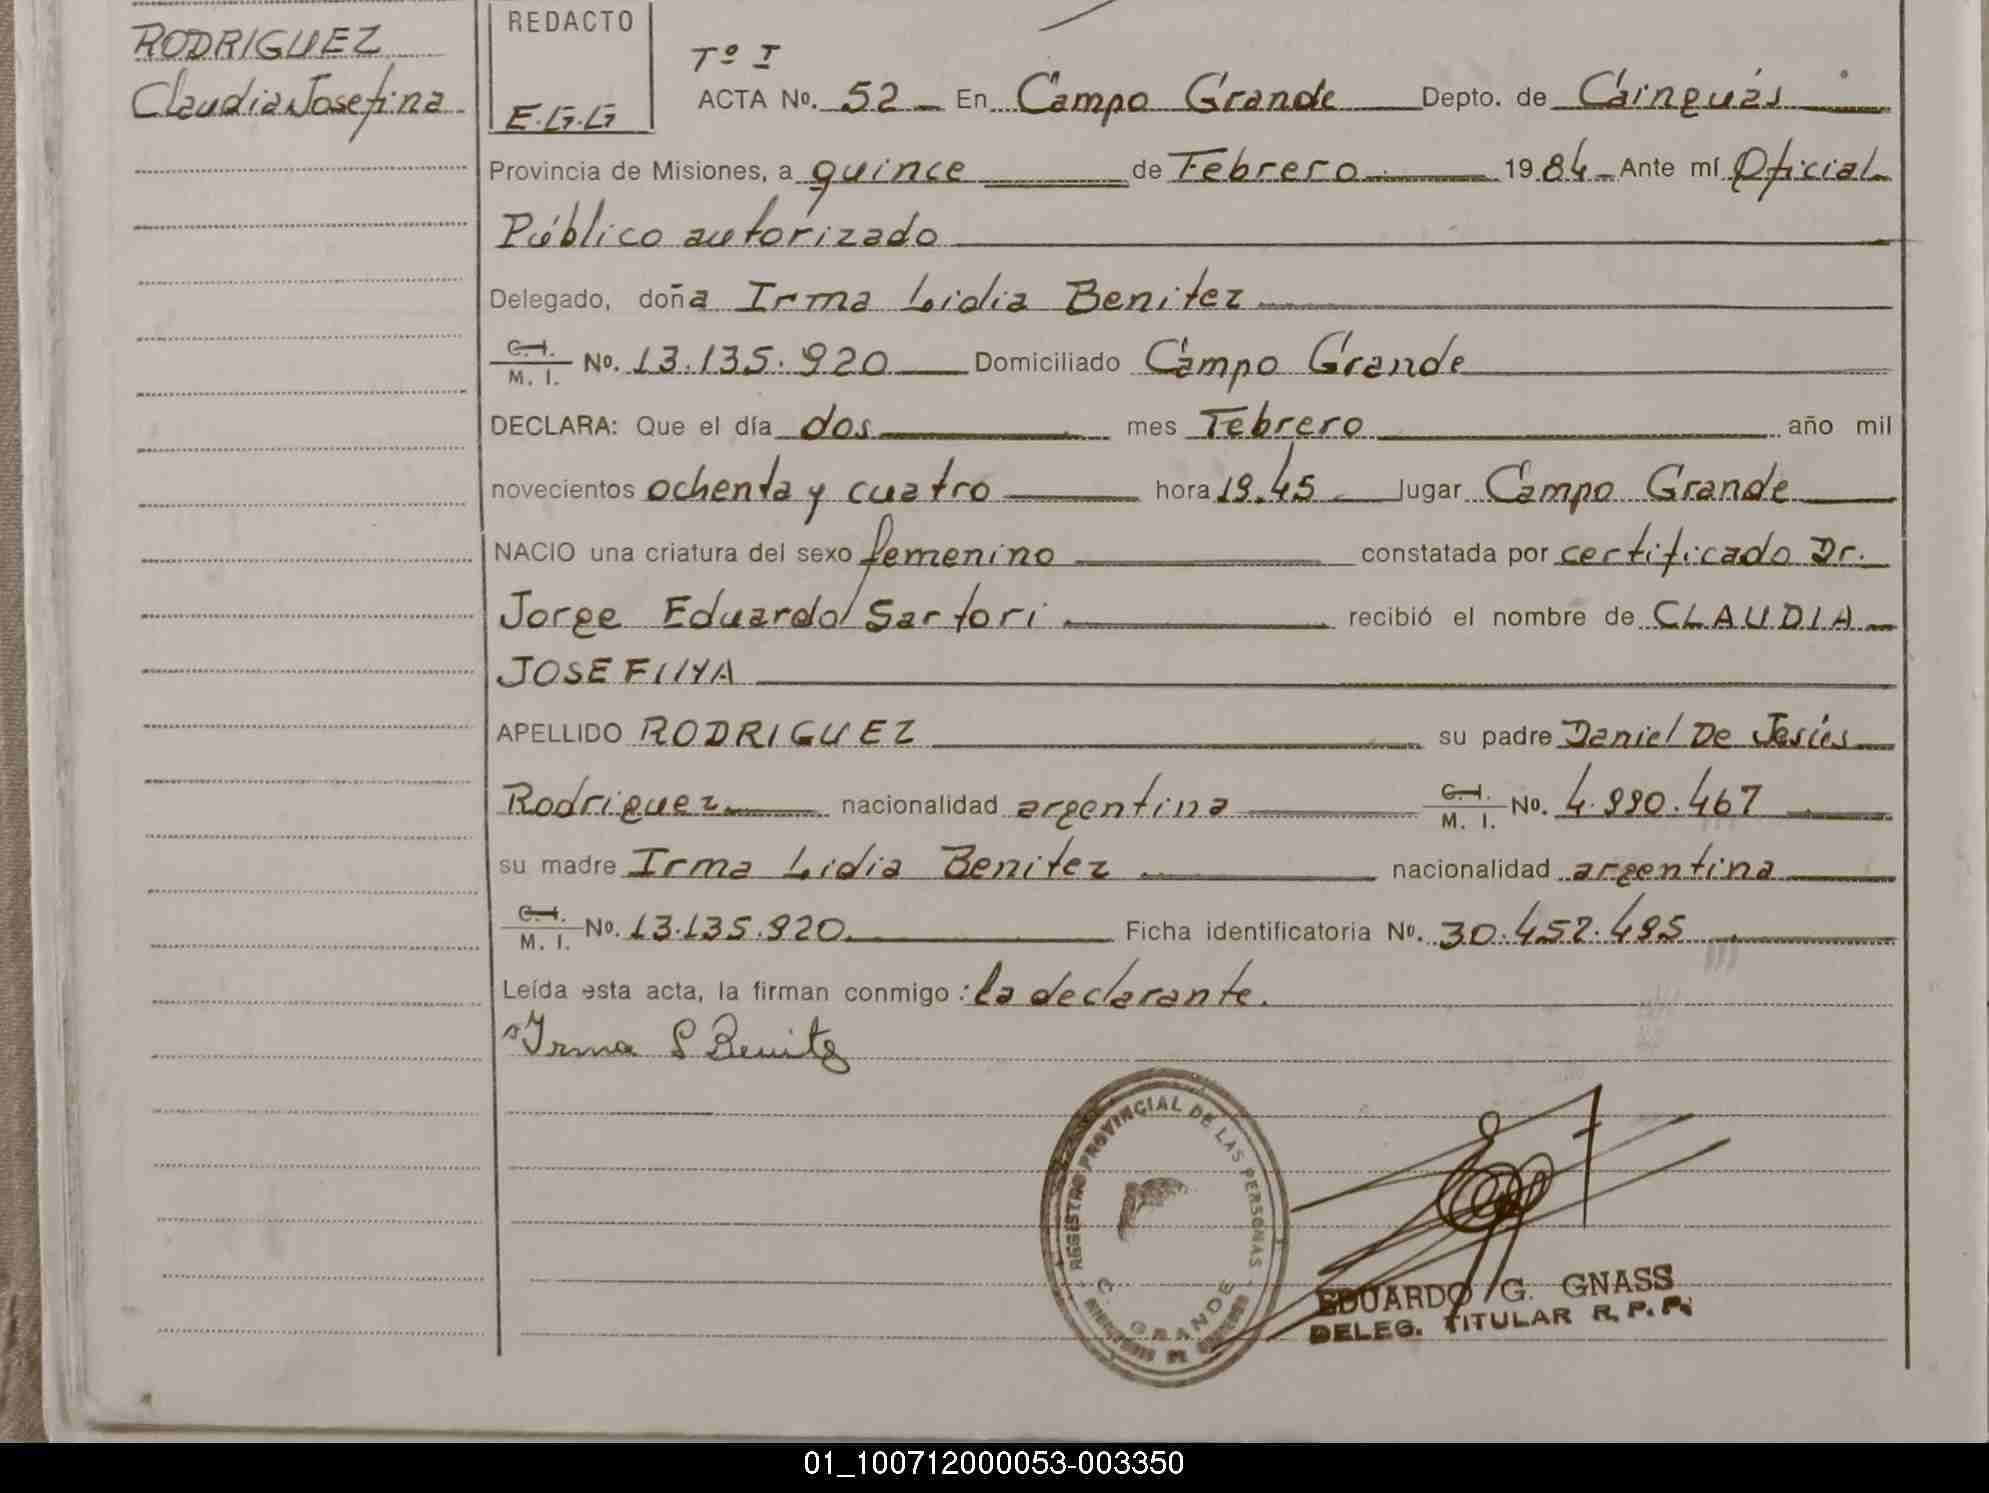 RODRIGUEZ
Claudia Josefina
REDACTO
E.G.G
Tº I
ACTA Nº. 52 En Campo Grande Depto. de Cainguás
Provincia de Misiones, a quince de Febrero 1984 Ante mí Oficial
Público autorizado
Delegado, doña Irma Lidia Benitez
C.I. M.I. Nº. 13.135.920 Domiciliado Campo Grande
DECLARA: Que el día dos mes Febrero año mil
novecientos ochenta y cuatro hora 19.45 lugar Campo Grande
NACIO una criatura del sexo femenino constatada por certificado Dr.
Jorge Eduardo Sartori recibió el nombre de CLAUDIA
JOSEFINA
APELLIDO RODRIGUEZ su padre Daniel De Jesús
Rodriguez nacionalidad argentina C.I. M.I. Nº. 4.990.467
su madre Irma Lidia Benitez nacionalidad argentina
C.I. M.I. Nº. 13.135.920 Ficha identificatoria Nº. 30.452.495
Leída esta acta, la firman conmigo: la declarante.
Irma L Benitez
REGISTRO PROVINCIAL DE LAS PERSONAS
C. GRANDE
EDUARDO G. GNASS
DELEG. TITULAR R. P. P.
01_100712000053-003350